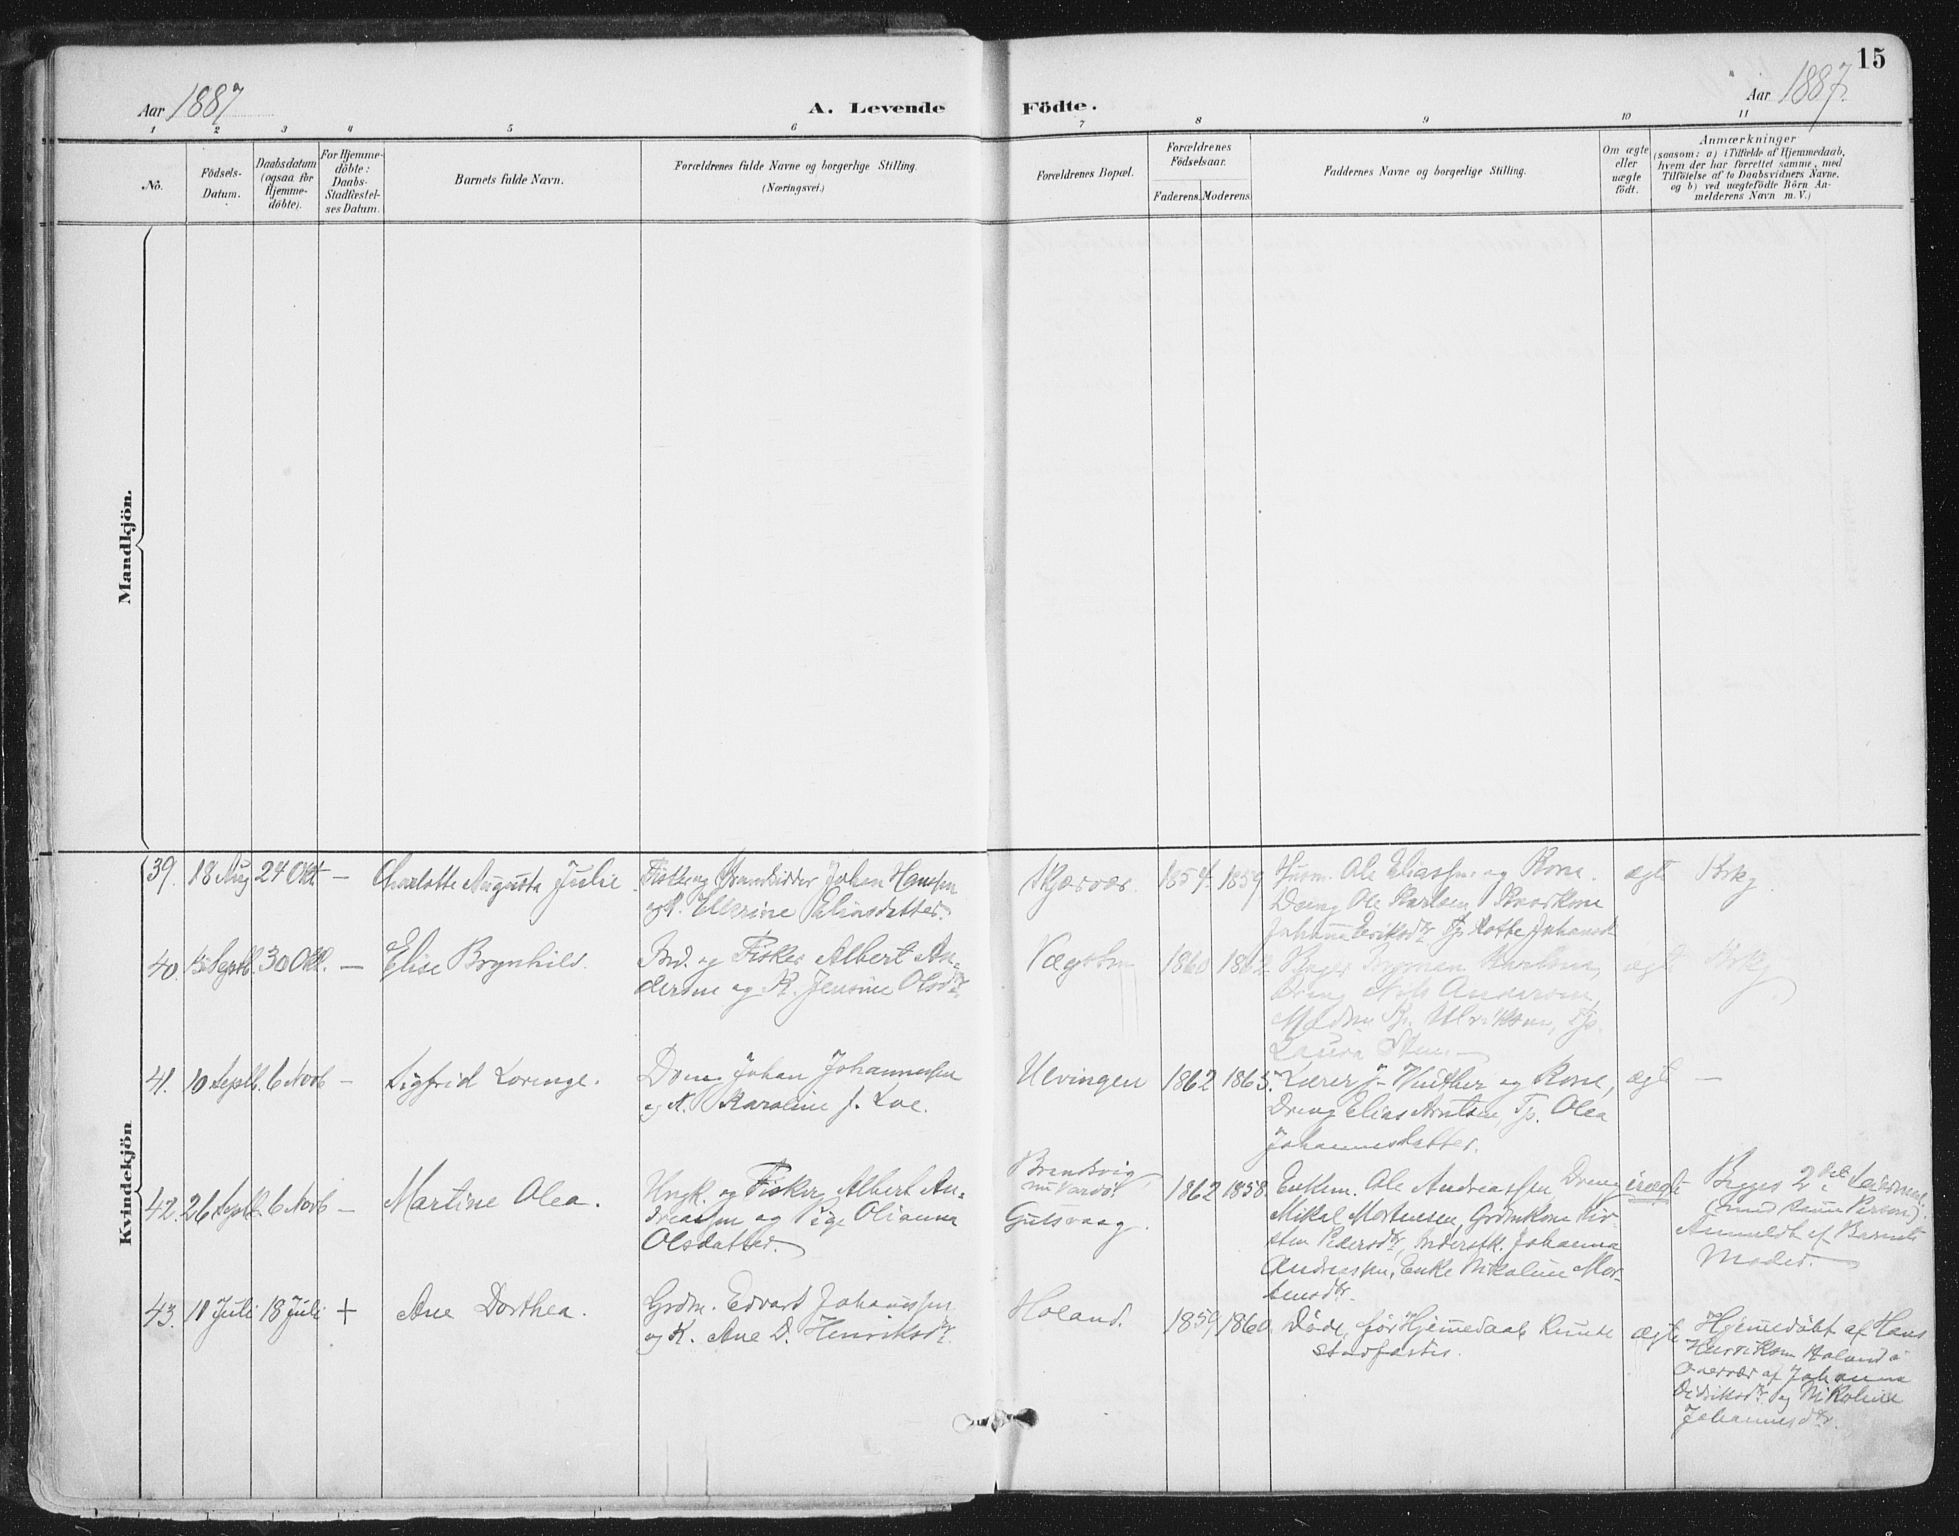 15
Aar 1887
A. Levende Födte.
Aar 1887.
1 2 3 4 5 6 7 8 9 10 11
No.
Födsels-
Datum.
Daabsdatum
(ogsaa for
Hjemme-
döbte).
For Hjemme-
döbte:
Daabs-
Stadfæstel-
ses Datum.
Barnets fulde Navn.
Forældrenes fulde Navne og borgerlige Stilling.
(Næringsvei.)
Forældrenes Bopæl.
Forældrenes
Födselsaar.
Faderens. Moderens.
Faddernes Navne og borgerlige Stilling.
Om ægte
eller
uægte
födt.
Anmærkninger
(saasom: a) i Tilfælde af Hjemmedaab,
hvem der har forrettet samme, med
Tilföielse af to Daabsvidners Navne,
og b) ved uægtefödte Börn An-
melderens Navn m. V.)
Mandkjön.
Kvindekjön
39. 18 Aug 24 Okt —
Charlotte Augusta Julie
Fisker og Johan Hansen
og K. Ellerine Eliasdatter.
Skjærvær.
1854 1859
Husm. Ole Eliassen og Kone.
Dreng Ole Karlsen,
Johanna Eriksdtr Tp.
ægte
40. 15 Septb. 30 Okt. —
Elise Brynhild.
Ind. og Fisker Albert An-
dersen og K. Jensine Olsdtr.
1860 1862
Karlsen,
Dreng Nils Andersen,
Ulriksen, Tp.
Laura
ægte
41. 10 Septb. 6 Novb —
Sigfrid Lorenze.
Johan Johannessen
og K. Karoline
Ulvingen
1862 1865.
Lærer J. Winther og Kone,
Dreng Elias Arntsen, Tp. Olea
Johannesdatter.
ægte —
42. 26 Septb. 6 Novb —
Martine Olea.
Ungk. og Fisker Albert An-
dreassen og Pige Olianna
Olsdatter.
Brendsvig,
nu Vardö.
Gutsvaag.
1862 1858.
Enkem. Ole Andreassen, Dreng
Mikal Mortensen, Grdmkone Kir-
sten Pedersdtr, Johanna
Andreassen, Enke Nikoline Mor-
tensdtr.
uægte
Begges 2det Leiermaal
(med samme Person).
Anmeldt af Barnets
Moder.
43. 11 Juli 18 Juli +
Ane Dorthea.
Grdm. Edvart Johanssen
og K. Ane D. Henriksdtr.
Holand.
1859 1860
Döde, för Hjemmedaab kunde
stadfæstes.
ægte
Hjemmedöbt af Hans
Henriksen Holand i
Overvær af Johanna
Didriksdtr. og Nikoline
Johannesdtr.